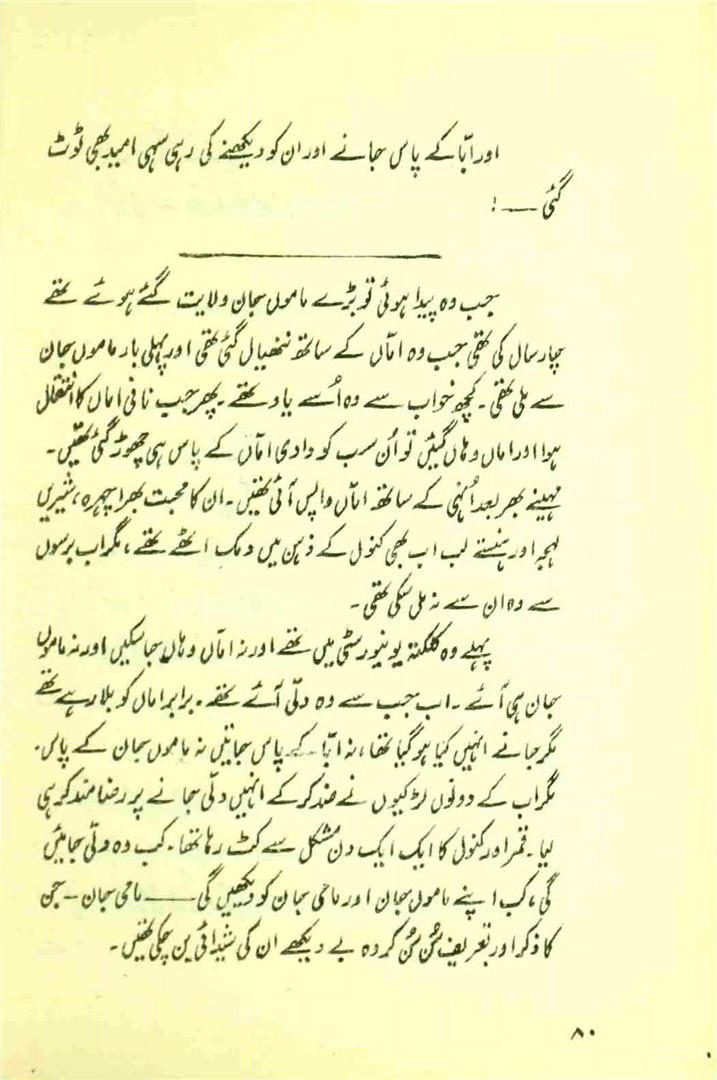 اور ابّا کے پاس جانے اور ان کو دیکھنے کی رہی سہی امید بھی ٹوٹ
گئی ـــ !
جب وہ پیدا ہوئی تو بڑے ماموں جان ولایت گئے ہوئے تھے
چار سال کی تھی جب وہ امّاں کے ساتھ ننھیال گئی تھی اور پہلی بار ماموں جان
سے ملی تھی۔ کچھ خواب سے وہ اُسے یاد تھے۔ پھر جب نانی اماں کا انتقال
ہوا اور اماں وہاں گئیں تو اُن سب کو دادی امّاں کے پاس ہی چھوڑ گئی تھیں۔
مہینے بھر بعد اُنہی کے ساتھ امّاں واپس آئی تھیں۔ ان کا محبت بھرا چہرہ، شیریں
لہجہ اور ہنستے لب اب بھی کنول کے ذہن میں دمک اٹھتے تھے، مگر اب برسوں
سے وہ ان سے نہ مل سکی تھی۔
پہلے وہ کلکتہ یونیورسٹی میں تھے اور نہ امّاں وہاں جا سکیں اور نہ ماموں
جان ہی آئے۔ اب جب سے وہ دلّی آئے تھے۔ برابر اماں کو بلا رہے تھے
مگر جانے انہیں کیا ہو گیا تھا، نہ ابّا کے پاس جاتیں نہ ماموں جان کے پاس۔
مگر اب کے دونوں لڑکیوں نے ضد کر کے انہیں دلّی جانے پر رضامند کر ہی
لیا۔ قمر اور کنول کا ایک ایک دن مشکل سے کٹ رہا تھا۔ کب وہ دلّی جائیں
گی، کب اپنے ماموں جان اور مامی جان کو دیکھیں گی ـــــ مامی جان ـ جن
کا ذکر اور تعریف سُن سُن کر وہ بے دیکھے ان کی شیدائی بن چکی تھیں۔
۸۰